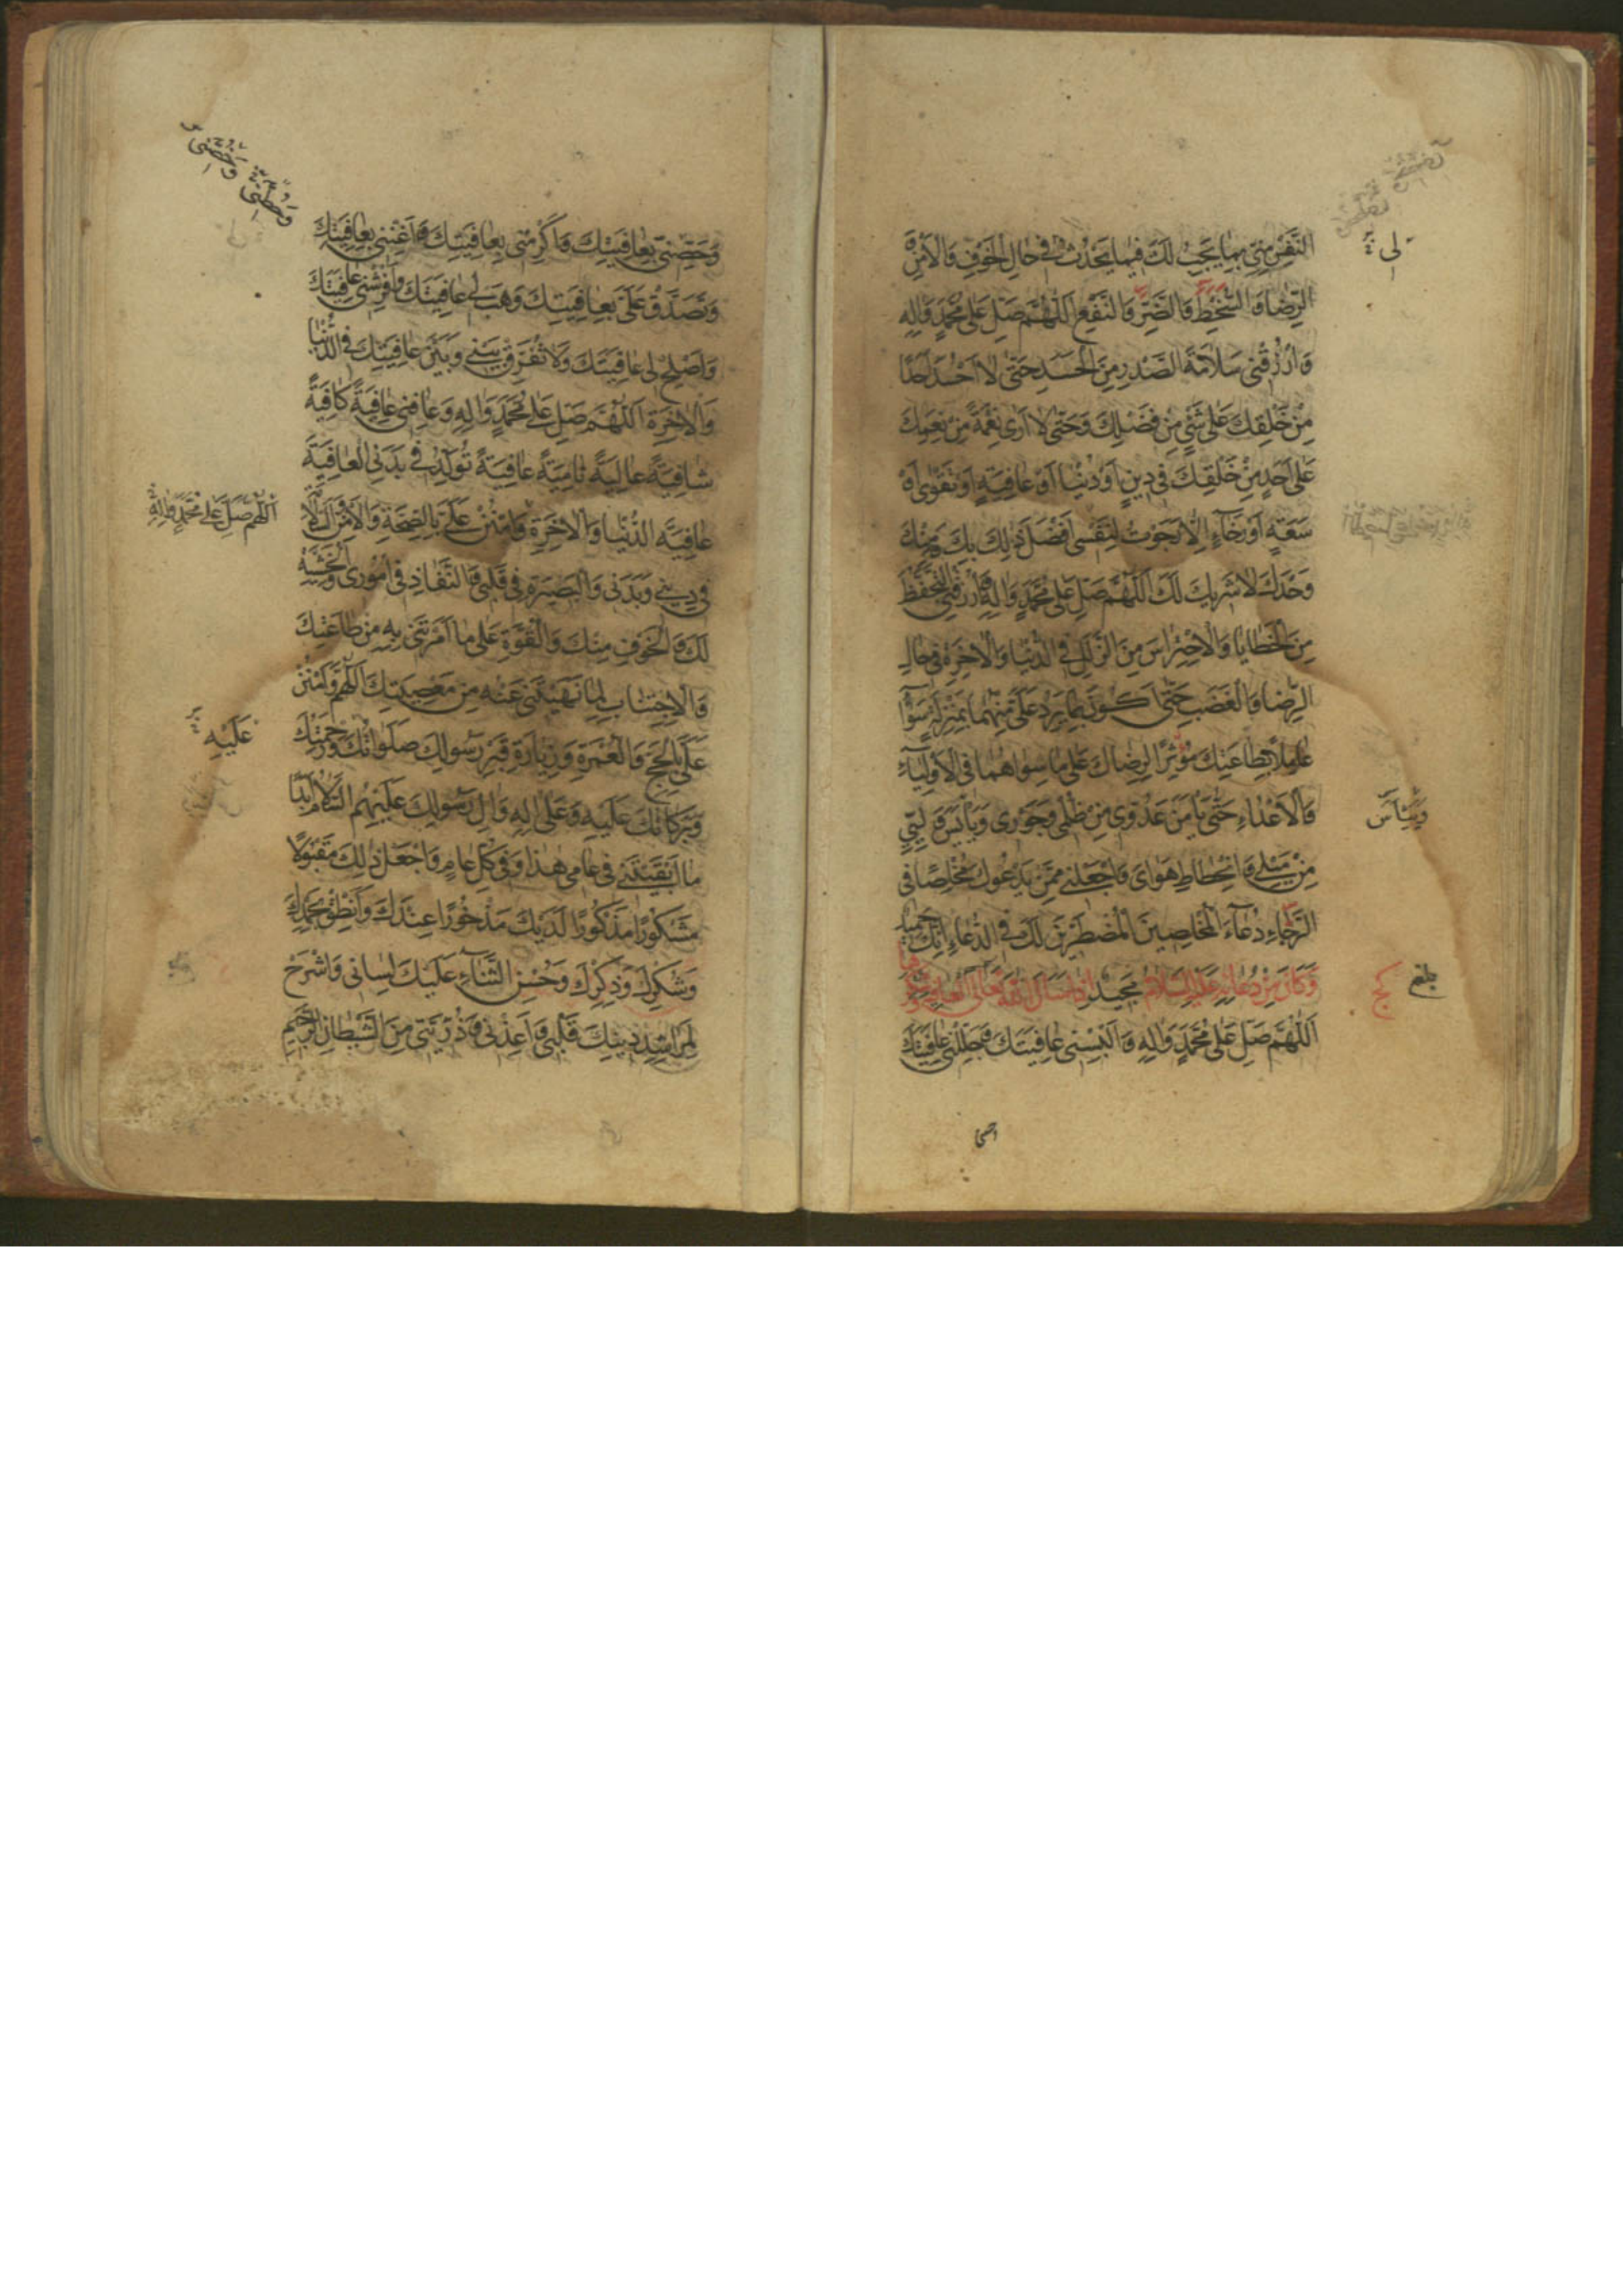 النَّفْسِ مِنِّي بِمَا يَجِبُ لَكَ فِيمَا يَحْدُثُ فِي حَالِ الْخَوْفِ وَالْأَمْنِ وَ
الرِّضَا وَالسُّخْطِ وَالضَّرِّ وَالنَّفْعِ اَللّٰهُمَّ صَلِّ عَلَى مُحَمَّدٍ وَآلِهِ
وَارْزُقْنِي سَلَامَةَ الصَّدْرِ مِنَ الْحَسَدِ حَتَّى لَا أَحْسُدَ أَحَدًا
مِنْ خَلْقِكَ عَلَى شَيْءٍ مِنْ فَضْلِكَ وَحَتَّى لَا أَرَى نِعْمَةً مِنْ نِعَمِكَ
عَلَى أَحَدٍ مِنْ خَلْقِكَ فِي دِينٍ أَوْ دُنْيَا أَوْ عَافِيَةٍ أَوْ تَقْوَى أَوْ
سَعَةٍ أَوْ رَخَاءٍ إِلَّا رَجَوْتُ لِنَفْسِي أَفْضَلَ ذَلِكَ بِكَ وَمِنْكَ
وَحْدَكَ لَا شَرِيكَ لَكَ اَللّٰهُمَّ صَلِّ عَلَى مُحَمَّدٍ وَآلِهِ وَارْزُقْنِي التَّحَفُّظَ
مِنَ الْخَطَايَا وَالْاِحْتِرَاسَ مِنَ الزَّلَلِ فِي الدُّنْيَا وَالْآخِرَةِ فِي حَالِ
الرِّضَا وَالْغَضَبِ حَتَّى أَكُونَ بِمَا يَرِدُ عَلَيَّ مِنْهُمَا بِمَنْزِلَةٍ سَوَاءٍ
عَامِلًا بِطَاعَتِكَ مُؤْثِرًا لِرِضَاكَ عَلَى مَا سِوَاهُمَا فِي الْأَوْلِيَاءِ
وَالْأَعْدَاءِ حَتَّى يَأْمَنَ عَدُوِّي مِنْ ظُلْمِي وَجَوْرِي وَيَأْيَسَ وَلِيِّي
مِنْ مَيْلِي وَانْحِطَاطِ هَوَايَ وَاجْعَلْنِي مِمَّنْ يَدْعُوكَ مُخْلِصًا فِي
الرَّخَاءِ دُعَاءَ الْمُخْلِصِينَ الْمُضْطَرِّينَ لَكَ فِي الدُّعَاءِ إِنَّكَ حَمِيدٌ
وَكَانَ مِنْ دُعَائِهِ عَلَيْهِ السَّلَامُ مَجِيدٌ إِذَا سَأَلَ اللهَ تَعَالَى الْعَافِيَةَ وَشُكْرَهَا
اَللّٰهُمَّ صَلِّ عَلَى مُحَمَّدٍ وَآلِهِ وَأَلْبِسْنِي عَافِيَتَكَ وَجَلِّلْنِي عَافِيَتَكَ
لِي
بلغ
وَحَصِّنِّي بِعَافِيَتِكَ وَأَكْرِمْنِي بِعَافِيَتِكَ وَأَغْنِنِي بِعَافِيَتِكَ
وَتَصَدَّقْ عَلَيَّ بِعَافِيَتِكَ وَهَبْ لِي عَافِيَتَكَ وَأَفْرِشْنِي عَافِيَتَكَ
وَأَصْلِحْ لِي عَافِيَتَكَ وَلَا تُفَرِّقْ بَيْنِي وَبَيْنَ عَافِيَتِكَ فِي الدُّنْيَا
وَالْآخِرَةِ اَللّٰهُمَّ صَلِّ عَلَى مُحَمَّدٍ وَآلِهِ وَعَافِنِي عَافِيَةً كَافِيَةً
شَافِيَةً عَالِيَةً نَامِيَةً عَافِيَةً تُوَلِّدُ فِي بَدَنِي الْعَافِيَةَ
عَافِيَةَ الدُّنْيَا وَالْآخِرَةِ وَامْنُنْ عَلَيَّ بِالصِّحَّةِ وَالْأَمْنِ وَالسَّلَامَةِ
فِي دِينِي وَبَدَنِي وَالْبَصِيرَةِ فِي قَلْبِي وَالنَّفَاذِ فِي أُمُورِي وَالْخَشْيَةِ
لَكَ وَالْخَوْفِ مِنْكَ وَالْقُوَّةِ عَلَى مَا أَمَرْتَنِي بِهِ مِنْ طَاعَتِكَ
وَالْاِجْتِنَابِ لِمَا نَهَيْتَنِي عَنْهُ مِنْ مَعْصِيَتِكَ اَللّٰهُمَّ وَامْنُنْ
عَلَيَّ بِالْحَجِّ وَالْعُمْرَةِ وَزِيَارَةِ قَبْرِ رَسُولِكَ صَلَوَاتُكَ وَرَحْمَتُكَ
وَبَرَكَاتُكَ عَلَيْهِ وَعَلَى آلِهِ وَآلِ رَسُولِكَ عَلَيْهِمُ السَّلَامُ أَبَدًا
مَا أَبْقَيْتَنِي فِي عَامِي هٰذَا وَفِي كُلِّ عَامٍ وَاجْعَلْ ذٰلِكَ مَقْبُولًا
مَشْكُورًا مَذْكُورًا لَدَيْكَ مَذْخُورًا عِنْدَكَ وَأَنْطِقْ بِحَمْدِكَ
وَشُكْرِكَ وَذِكْرِكَ وَحُسْنِ الثَّنَاءِ عَلَيْكَ لِسَانِي وَاشْرَحْ
لِمَرَاشِدِ دِينِكَ قَلْبِي وَأَعِذْنِي وَذُرِّيَّتِي مِنَ الشَّيْطَانِ الرَّجِيمِ
اَللّٰهُمَّ صَلِّ عَلَى مُحَمَّدٍ وَآلِهِ
عَلَيْهِ